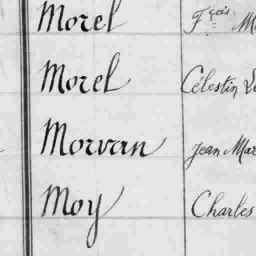 Morel Fçois
Morel Célestin
Morvan Jean
Moy Charles